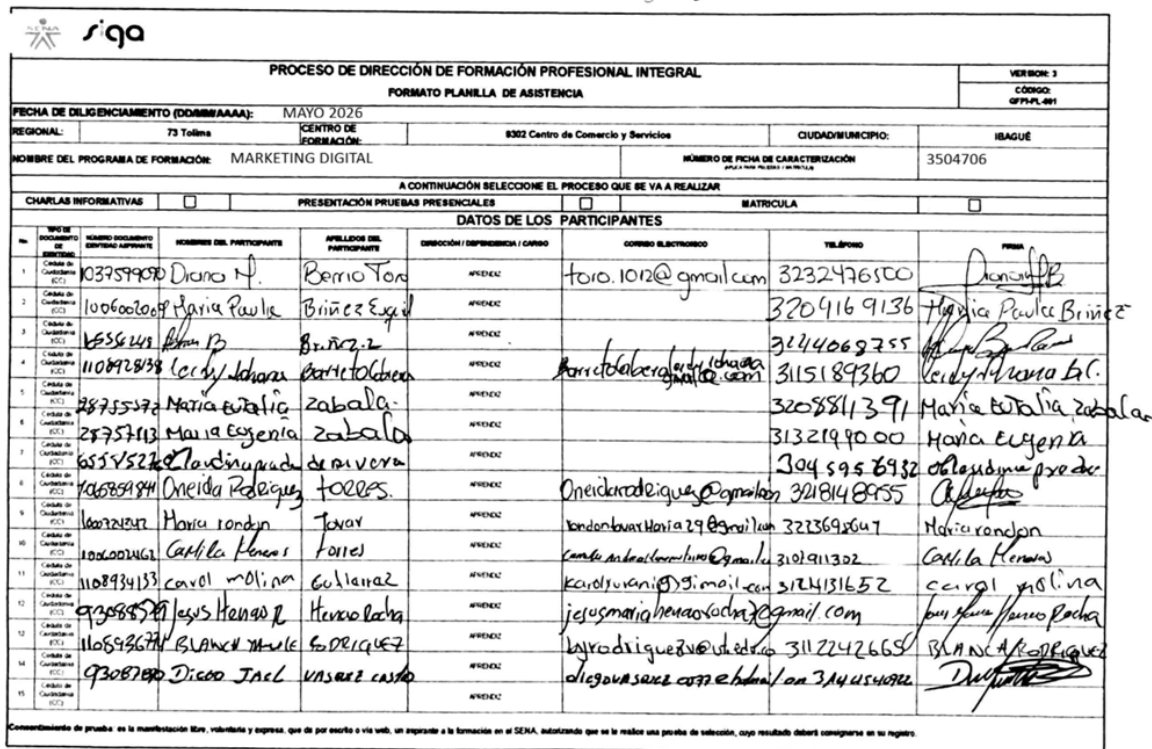 SENA siga
PROCESO DE DIRECCIÓN DE FORMACIÓN PROFESIONAL INTEGRAL
FORMATO PLANILLA DE ASISTENCIA
VERSION: 3
CÓDIGO:
GFPI-PL-001
FECHA DE DILIGENCIAMIENTO (DD/MM/AAAA): MAYO 2026
REGIONAL: 73 Tolima CENTRO DE FORMACIÓN: 9302 Centro de Comercio y Servicios CIUDAD/MUNICIPIO: IBAGUÉ
NOMBRE DEL PROGRAMA DE FORMACIÓN: MARKETING DIGITAL NÚMERO DE FICHA DE CARACTERIZACIÓN 3504706
A CONTINUACIÓN SELECCIONE EL PROCESO QUE SE VA A REALIZAR
CHARLAS INFORMATIVAS PRESENTACIÓN PRUEBAS PRESENCIALES MATRICULA
DATOS DE LOS PARTICIPANTES
No. TIPO DE DOCUMENTO DE IDENTIDAD NÚMERO DOCUMENTO IDENTIDAD ASPIRANTE NOMBRES DEL PARTICIPANTE APELLIDOS DEL PARTICIPANTE DIRECCIÓN / DEPENDENCIA / CARGO CORREO ELECTRONICO TELÉFONO FIRMA
1 Cédula de Ciudadanía (CC) 1037599090 Diana M. Berrio Toro APRENDIZ toro.1012@gmail.com 3232476500
2 Cédula de Ciudadanía (CC) 1006002009 Maria Paula Briñez APRENDIZ 3204169136 Maria Paula Briñez
3 Cédula de Ciudadanía (CC) Briñez.z APRENDIZ 3244068755
4 Cédula de Ciudadanía (CC) 1108928138 Leidy Johana Barreto Cabrera APRENDIZ 3115189360 Leidy Johana b.C.
5 Cédula de Ciudadanía (CC) 28755572 Maria Eutalia zabala. APRENDIZ 3208811391 Maria Eutalia zabala
6 Cédula de Ciudadanía (CC) 28757113 Maria Eugenia zabala APRENDIZ 3132199000 Maria Eugenia
7 Cédula de Ciudadanía (CC) de rivera APRENDIZ 3045956932
8 Cédula de Ciudadanía (CC) 1065859841 Oneida Rodriguez torres. APRENDIZ 3218148955
9 Cédula de Ciudadanía (CC) Maria rondon Tovar APRENDIZ 3223698647 Maria rondon
10 Cédula de Ciudadanía (CC) 1006002462 torres APRENDIZ 3102911302
11 Cédula de Ciudadanía (CC) 1108934133 carol molina Gutierrez APRENDIZ 3124131652 carol molina
12 Cédula de Ciudadanía (CC) 93088579 Jesus Henao R Henao Rocha APRENDIZ
13 Cédula de Ciudadanía (CC) BLANCA RODRIGUEZ APRENDIZ 3112242665 BLANCA RODRIGUEZ
14 Cédula de Ciudadanía (CC) Diego JAEL VASQUEZ castro APRENDIZ
15 Cédula de Ciudadanía (CC) APRENDIZ
Consentimiento de prueba: es la manifestación libre, voluntaria y expresa, que da por escrito o vía web, un aspirante a la formación en el SENA, autorizando que se le realice una prueba de selección, cuyo resultado deberá consignarse en su registro.